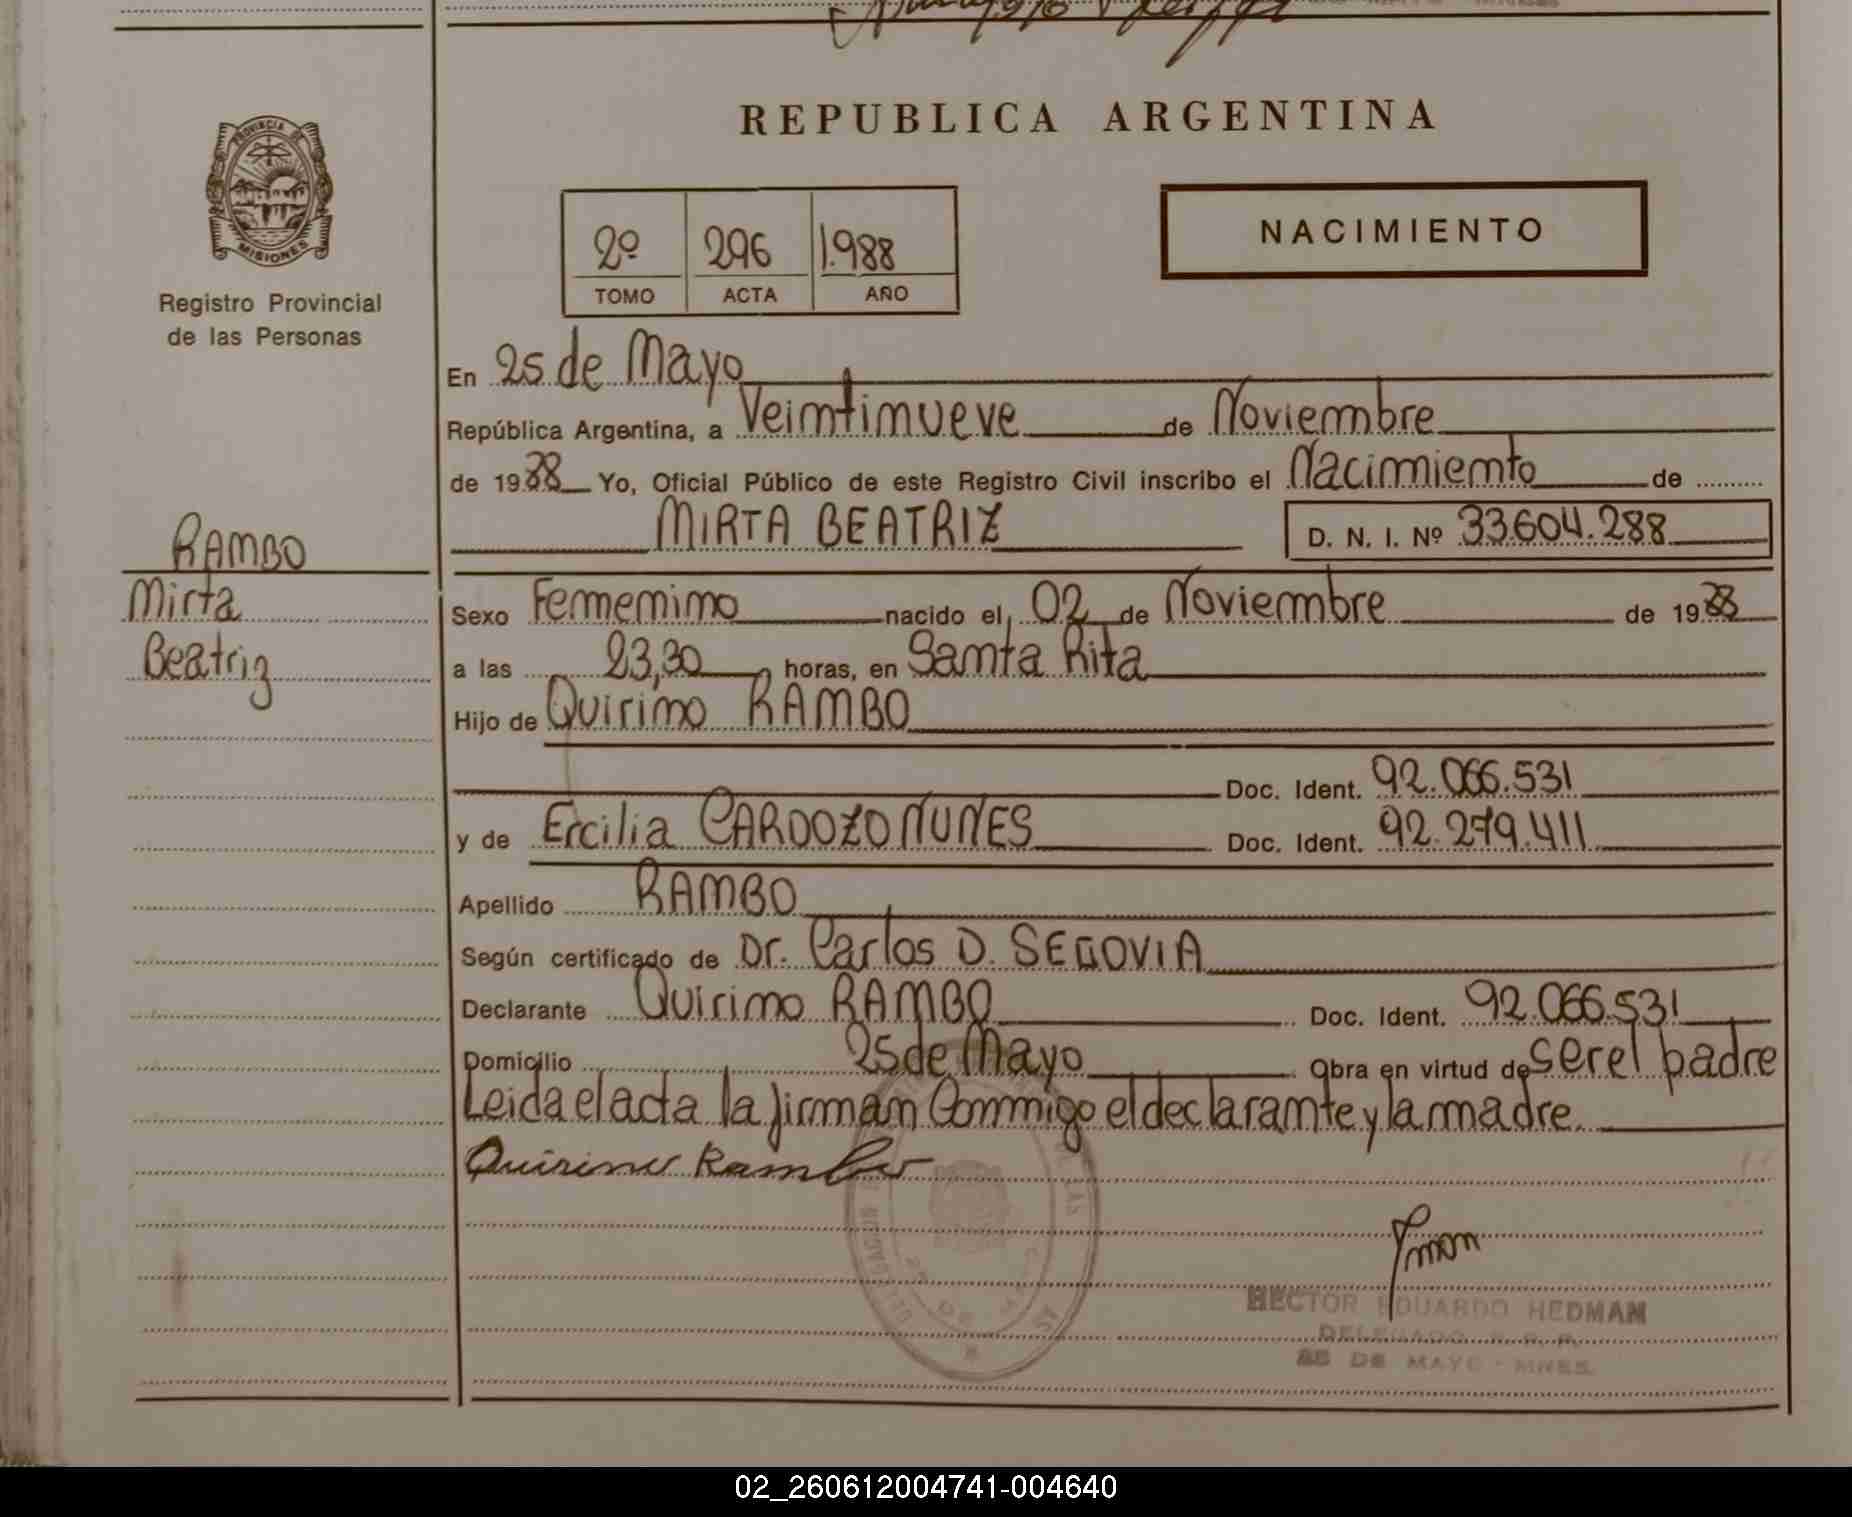 REPUBLICA ARGENTINA
PROVINCIA DE
MISIONES
Registro Provincial
de las Personas
2º 296 1.988
TOMO ACTA AÑO
NACIMIENTO
En 25 de Mayo
República Argentina, a Veintinueve de Noviembre
de 1988 Yo, Oficial Público de este Registro Civil inscribo el Nacimiento de
MIRTA BEATRIZ D. N. I. Nº 33.604.288
RAMBO
Mirta
Beatriz
Sexo Femenino nacido el, 02 de Noviembre de 1988
a las 23,30 horas, en Santa Rita
Hijo de Quirino RAMBO
Doc. Ident. 92.066.531
y de Ercilia CARDOZO NUNES Doc. Ident. 92.279.411
Apellido RAMBO
Según certificado de Dr. Carlos D. SEGOVIA
Declarante Quirino RAMBO Doc. Ident. 92.066.531
Domicilio 25 de Mayo Obra en virtud de ser el padre
Leida el acta la firman Conmigo el declarante y la madre.
Quirino Rambo
HECTOR EDUARDO HEDMAN
DELEGADO R. R. P.
25 DE MAYO - MNES.
02_260612004741-004640